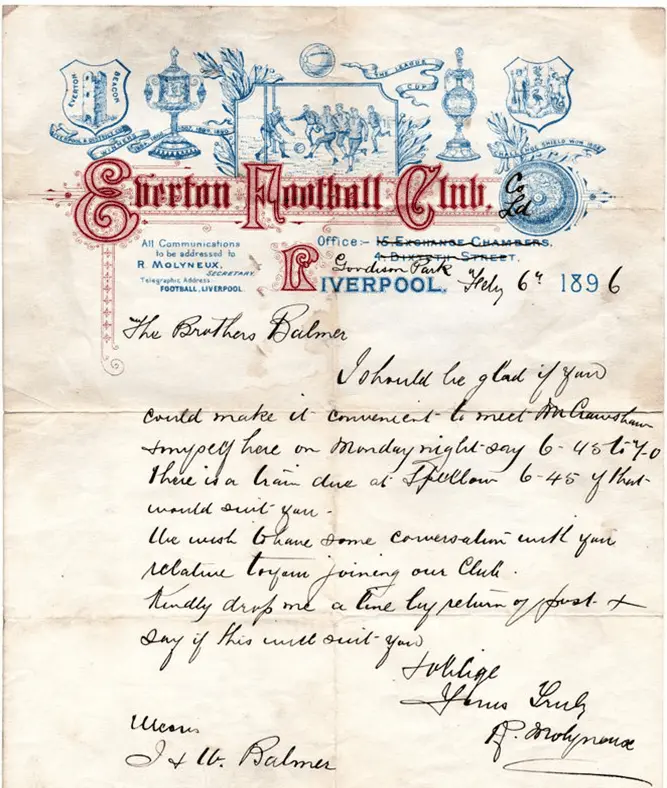 EVERTON
BEACON
THE LEAGUE
CUP
WINNERS
Everton Football Club. Co
Ld
All Communications
to be addressed to
R. MOLYNEUX,
SECRETARY.
Telegraphic Address
FOOTBALL, LIVERPOOL.
Office:- 15 EXCHANGE CHAMBERS,
4, BIXTETH STREET,
Goodison Park
LIVERPOOL. Feby 6th 1896
The Brothers Balmer
I should be glad if you
could make it convenient to meet Mr Crawshaw
& myself here on Monday night say 6-45 to 7-0
There is a train due at Spellow 6-45 if that
would suit you -
We wish to have some conversation with you
relative to your joining our Club.
Kindly drop me a line by return of post &
say if this will suit you
& oblige
Yours Truly
R. Molyneux
Messrs
J & W. Balmer